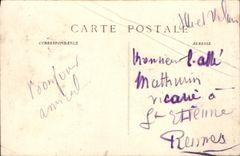 CARTE POSTALE
CORRESPONDANCE
ADRESSE
Ille et Vilaine
Bonjour
amical
Monsieur l'abbé
Mathurin
vicaire à
St Etienne
Rennes